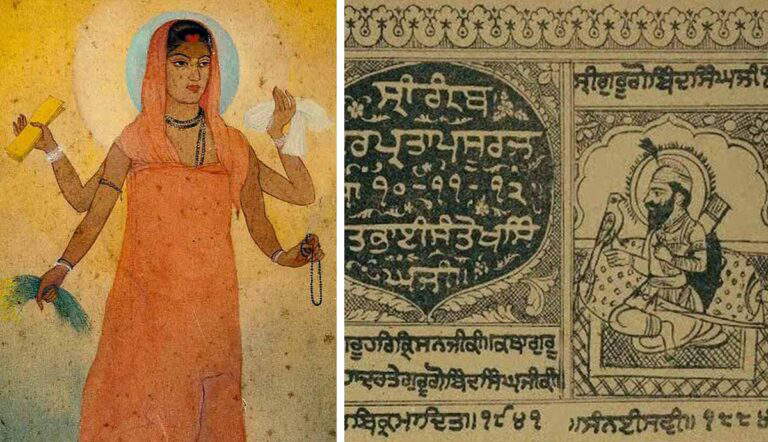 ਸ੍ਰੀ
ਰਪ੍ਰਤਾਪਸੂਰਜ
੧੦-੧੧-੧੨
ਤਭਾਈਸੰਤੋਖਸਿੰ
ਘਜੀ॥
ਸ੍ਰੀਗੁਰੂਗੋਬਿੰਦਸਿੰਘਜੀ
ਰੂਹਰਿਕ੍ਰਿਸਨਜੀਕੀ॥ਕਥਾਗੁਰੂ
ਾਦਰਤੇਗੁਰੂਗੋਬਿੰਦਸਿੰਘਜੀਕੀ॥
ਬਿਕ੍ਰਮਾਦਿਤ॥੧੯੪੧ ॥ਸੰਨਈਸਵੀ॥੧੮੮੪